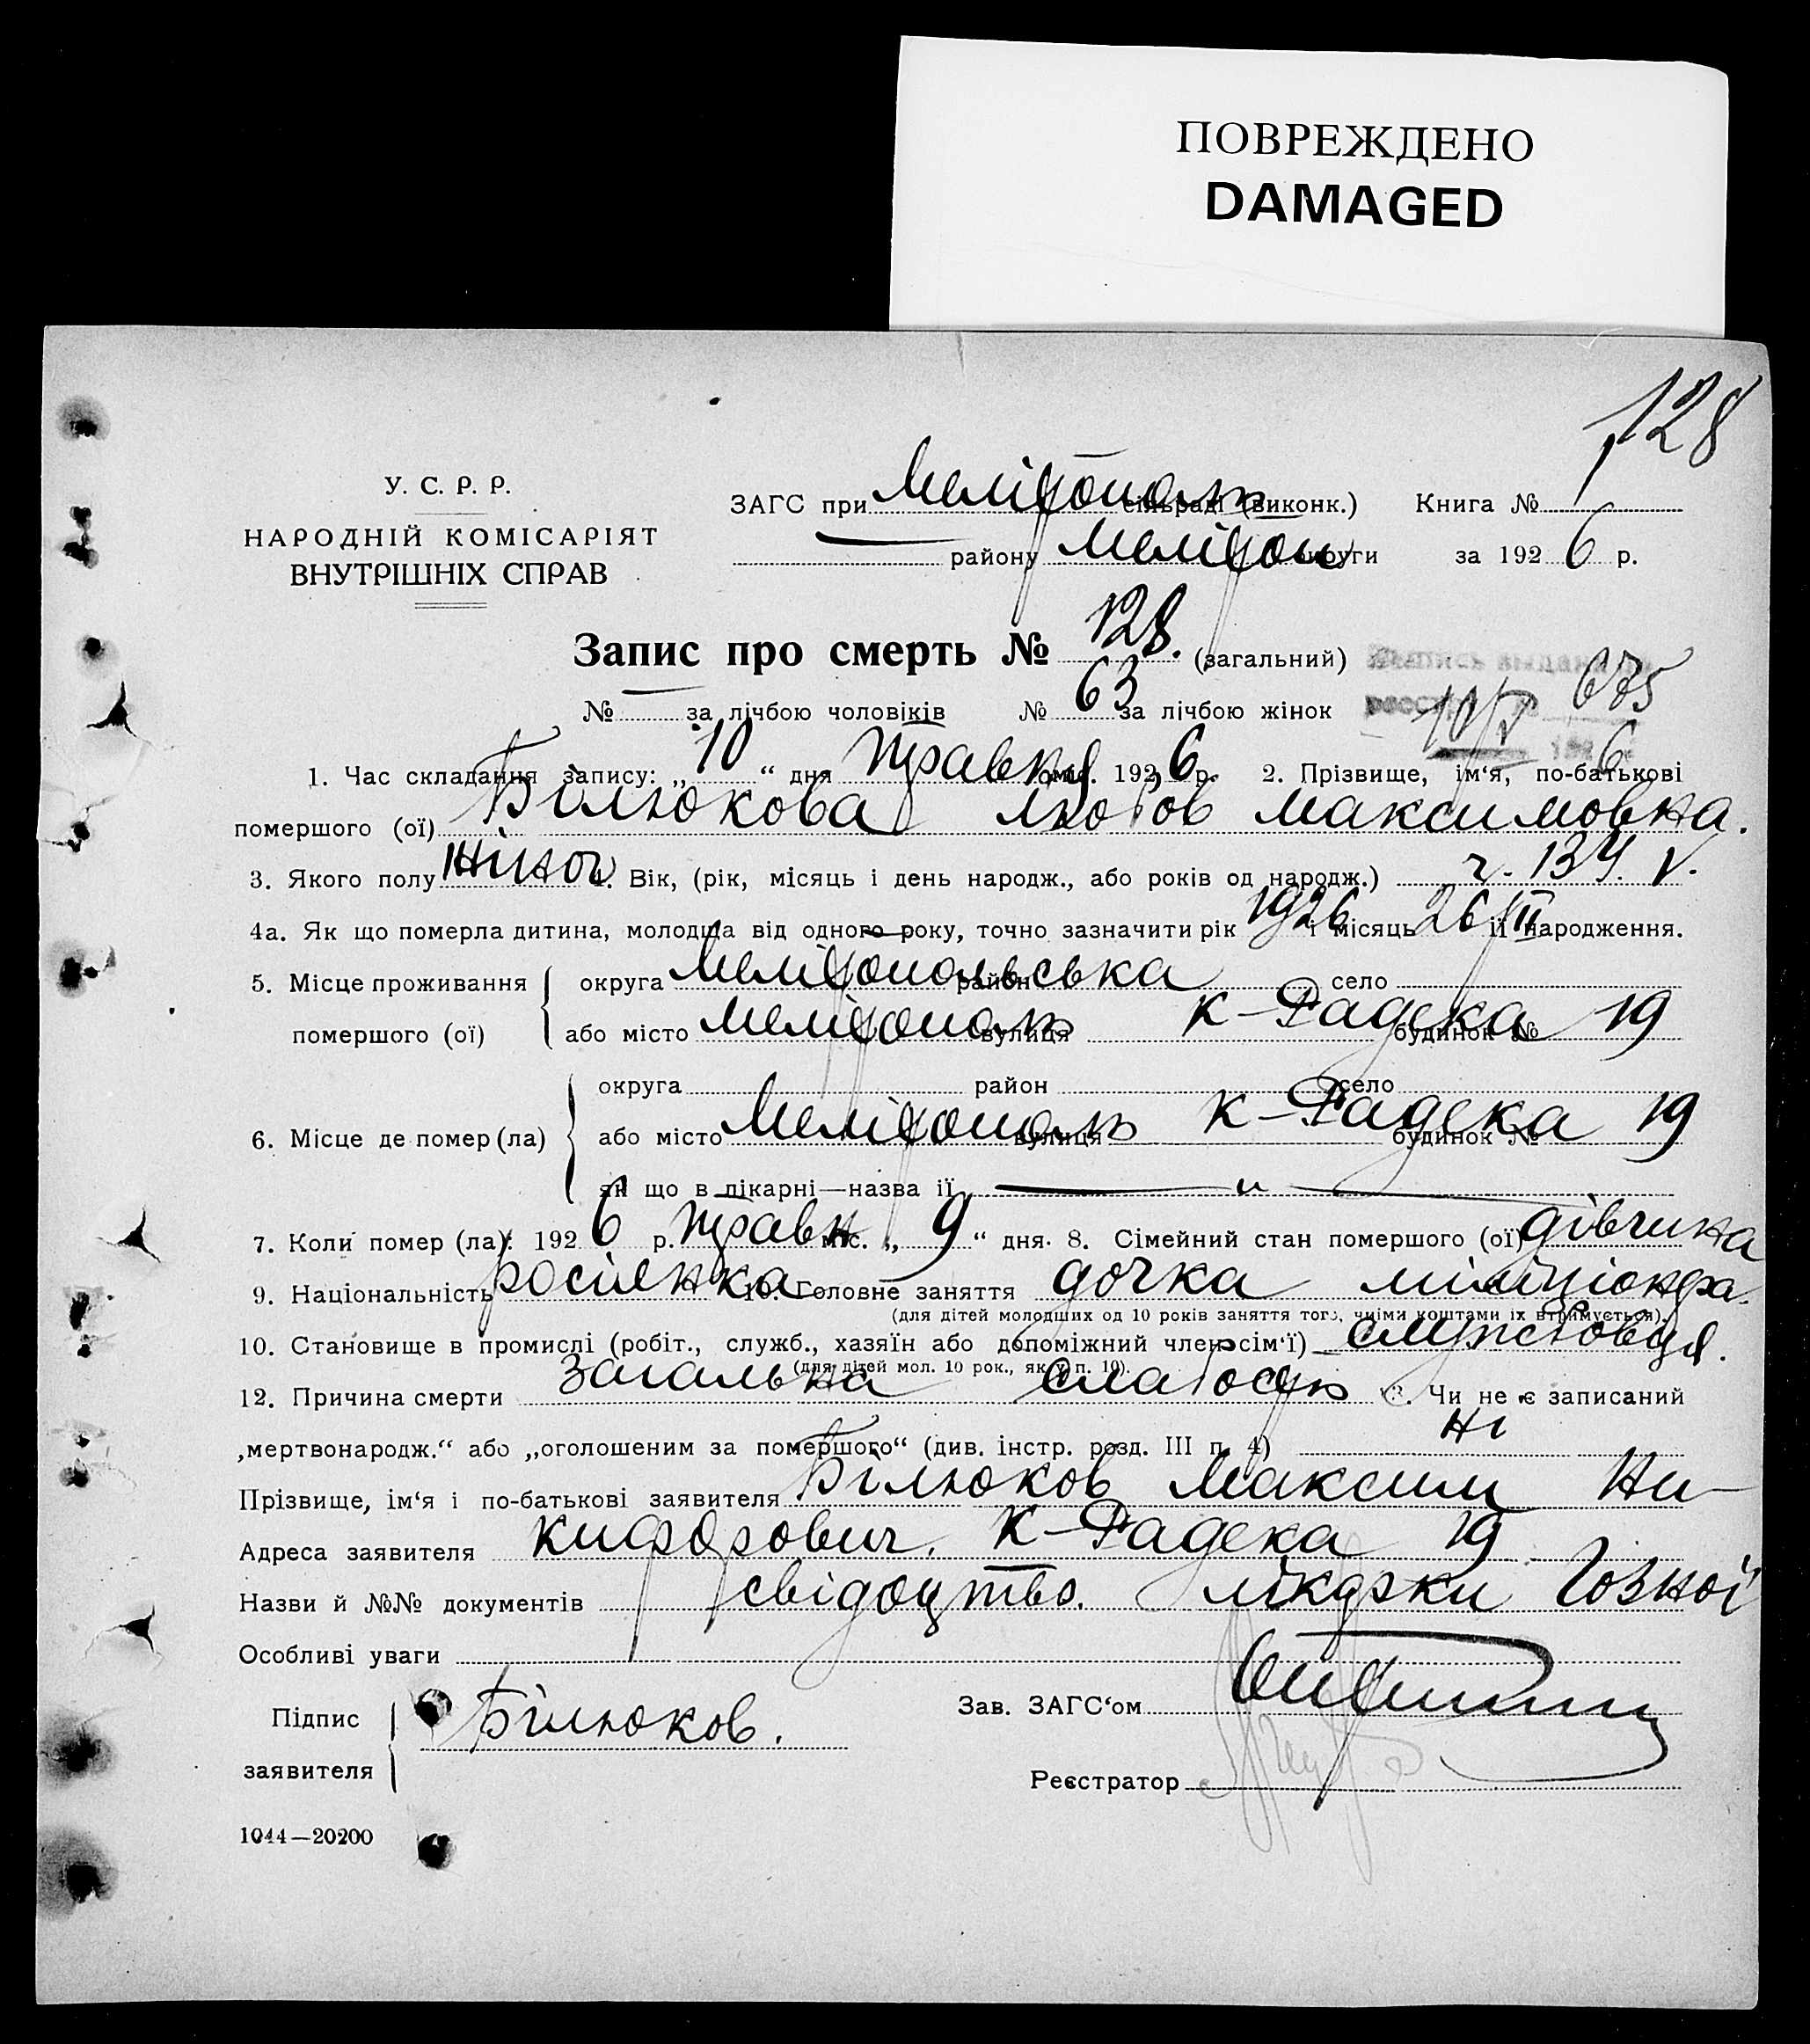 ПОВРЕЖДЕНО
DAMAGED
128
У. С. Р. Р.
НАРОДНІЙ КОМІСАРІЯТ
ВНУТРІШНІХ СПРАВ
ЗАГС при Мелітополь сільраді (виконк.) Книга № 1
району Мелітоп округи за 1926 р.
Запис про смерть № 128. (загальний)
№ — за лічбою чоловіків № 63 за лічбою жінок
675
10/V
6
1. Час складання запису: „10“ дня травня міс. 1926 р. 2. Прізвище, ім‘я, по-батькові
помершого (ої) Білюкова Любов Максимовна.
3. Якого полу жіноч 4. Вік, (рік, місяць і день народж., або років од народж.)
4а. Як що померла дитина, молодша від одного року, точно зазначити рік 1926 і місяць 26/II її народження.
5. Місце проживання округа Мелітопольська район село
помершого (ої) або місто Мелітополь вулиця К-Радека будинок № 19
округа район село
6. Місце де помер (ла) або місто Мелітополь вулиця К-Радека будинок № 19
як що в лікарні—назва її — „ —
7. Коли помер (ла): 1926 р. травн міс. „9“ дня. 8. Сімейний стан помершого (ої) дівчина
9. Національність росіянка 10. Головне заняття дочка міліціонера.
(для дітей молодших од 10 років заняття того, чиїми коштами їх втримується).
10. Становище в промислі (робіт., служб., хазяїн або допоміжний член сім‘ї) службовця.
(для дітей мол. 10 рок., як у п. 10).
12. Причина смерти загальна слабость 13. Чи не є записаний
„мертвонародж.“ або „оголошеним за помершого“ (див. інстр. розд. III п. 4) ні
Прізвище, ім‘я і по-батькові заявителя Білюков Максим Ни-
Адреса заявителя кифорович. К-Радека 19
Назви й №№ документів свідоцтво. лікарки Гозной
Особливі уваги
Підпис
заявителя
Білюков.
Зав. ЗАГС‘ом
Реєстратор
1044—20200